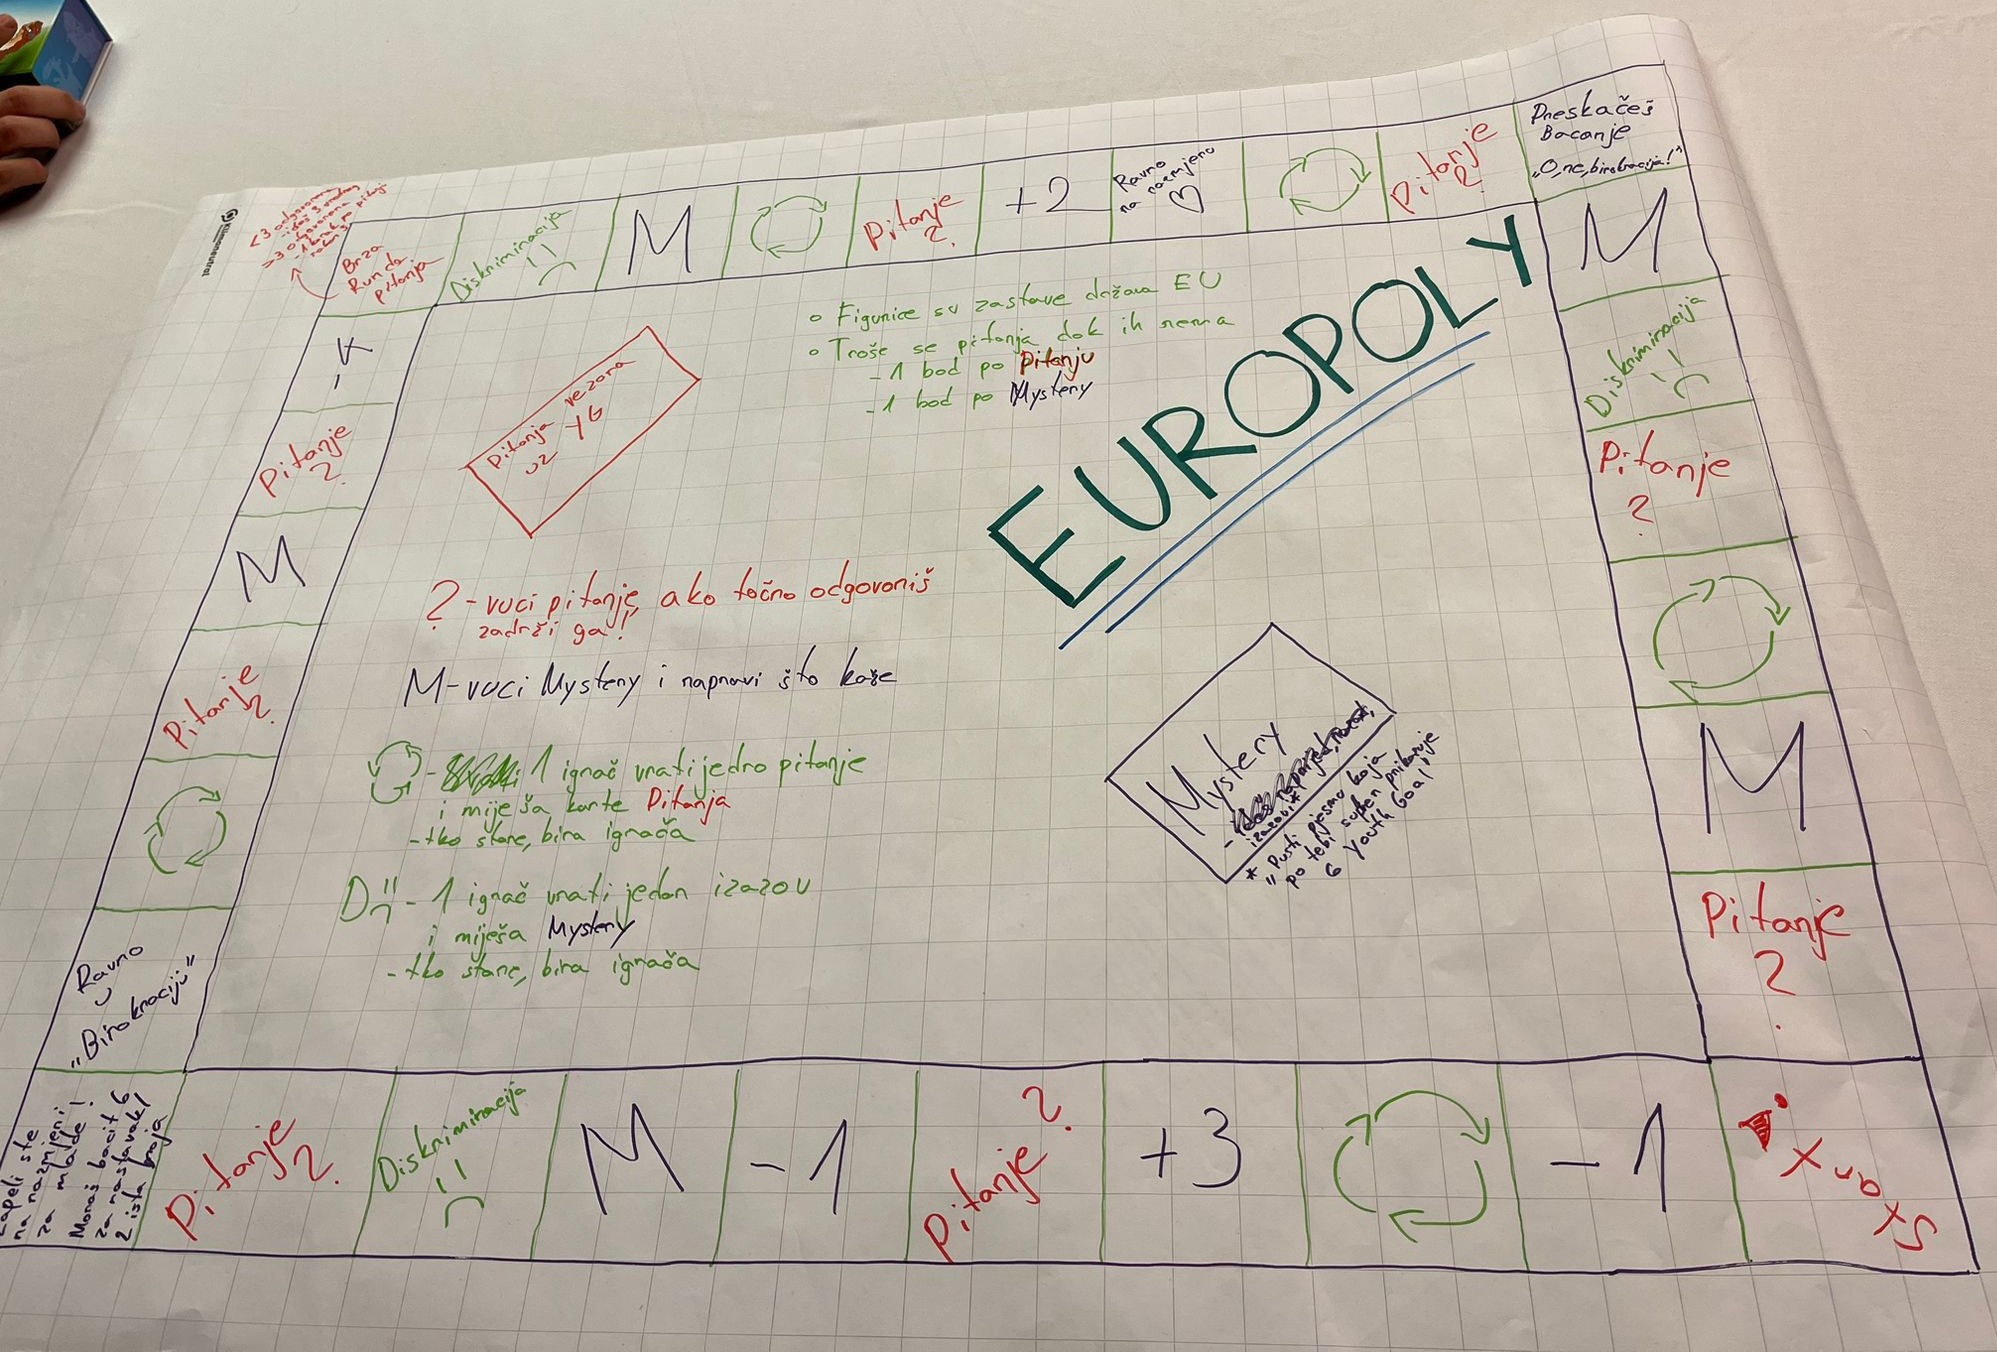 Klimaneutral
<3 odgovorena
- ideš 3 natrag
>3 odgovorena
Brza
Runda
pitanja
Diskriminacija
M
Pitanje
?
+2
Ravno
na razmjenu
Pitanje
?
Preskačeš
Bacanje
„O, ne, birokracija!"
M
Diskriminacija
Pitanje
?
M
Pitanje
?
Start
-1
+3
Pitanje ?
-1
M
Diskriminacija
Pitanje
?
Zapeli ste
na razmjeni
za mlade!
Moraš bacit 6
za nastavak/
2 ista broja
Ravno
u
„Birokraciju"
Pitanje
?
M
Pitanje
?
Pitanja vezana
uz YG
o Figurice su zastave država EU
o Troše se pitanja dok ih nema
- 1 bod po Pitanju
- 1 bod po Mystery
EUROPOLY
? - vuci pitanje, ako točno odgovoriš
zadrži ga!
M - vuci Mystery i napravi što kaže
- 1 igrač vrati jedno pitanje
i miješa karte Pitanja
- tko stane, bira igrača
D - 1 igrač vrati jedan izazov
i miješa Mystery
- tko stane, bira igrača
Mystery
- naprijed, nazad,
izazovi*
* „Pusti pjesmu koja
po tebi super prikazuje
6 Youth Goal"